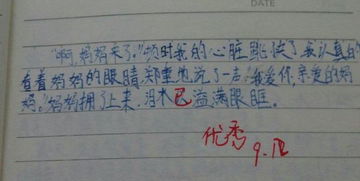 DATE
"啊，妈妈来了。"顿时我的心脏跳快了，我认真的
看着妈妈的眼睛，郑重地说了一声："我爱你，亲爱的妈
妈。"妈妈拥了上来，泪水已溢满眼眶。
优秀
9.12